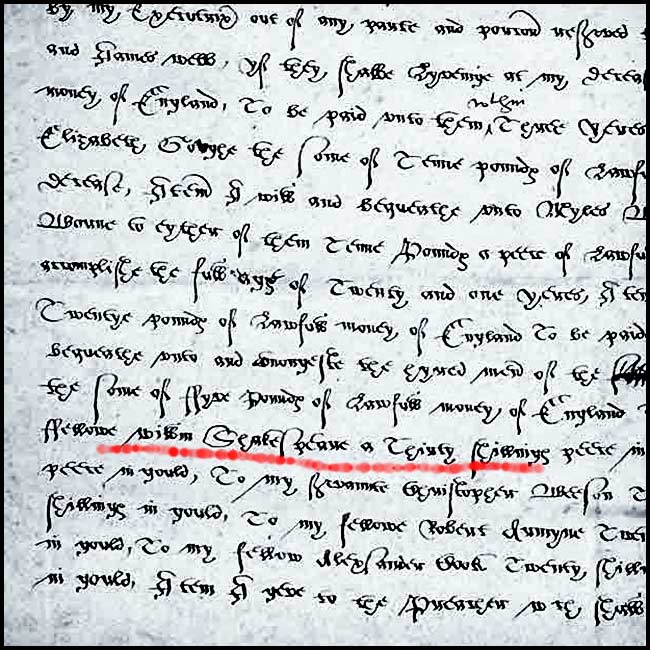 by my Executrix out of any parte and porcon reserved
and James webb, yf they shalbe lyveinge at my deceas
money of England, To be paid vnto them, wthin Three yeres
Elizabeth Goughe the some of Tenne poundes of Lawfu
decease, Item I will and bequeathe vnto Myles
Bourne to eyther of them Tenne Poundes a peece of Lawfu
accomplishe the full age of Twenty and one yeres, Item
Twentye poundes of Lawfull money of England To be paid
bequeathe vnto and amongeste the hyred men of the
the some of ffyve Poundes of Lawfull money of England
ffellowe willm Shakespeare a Thirty shillinges peece in
peece in gould, To my servaunte Christopher Beeston T
shillinges in gould, To my fellowe Robert Armyne Twen
in gould, To my fellow Alexsander Cook Twenty shilli
in gould, Item I geve to the Preacher wch shall